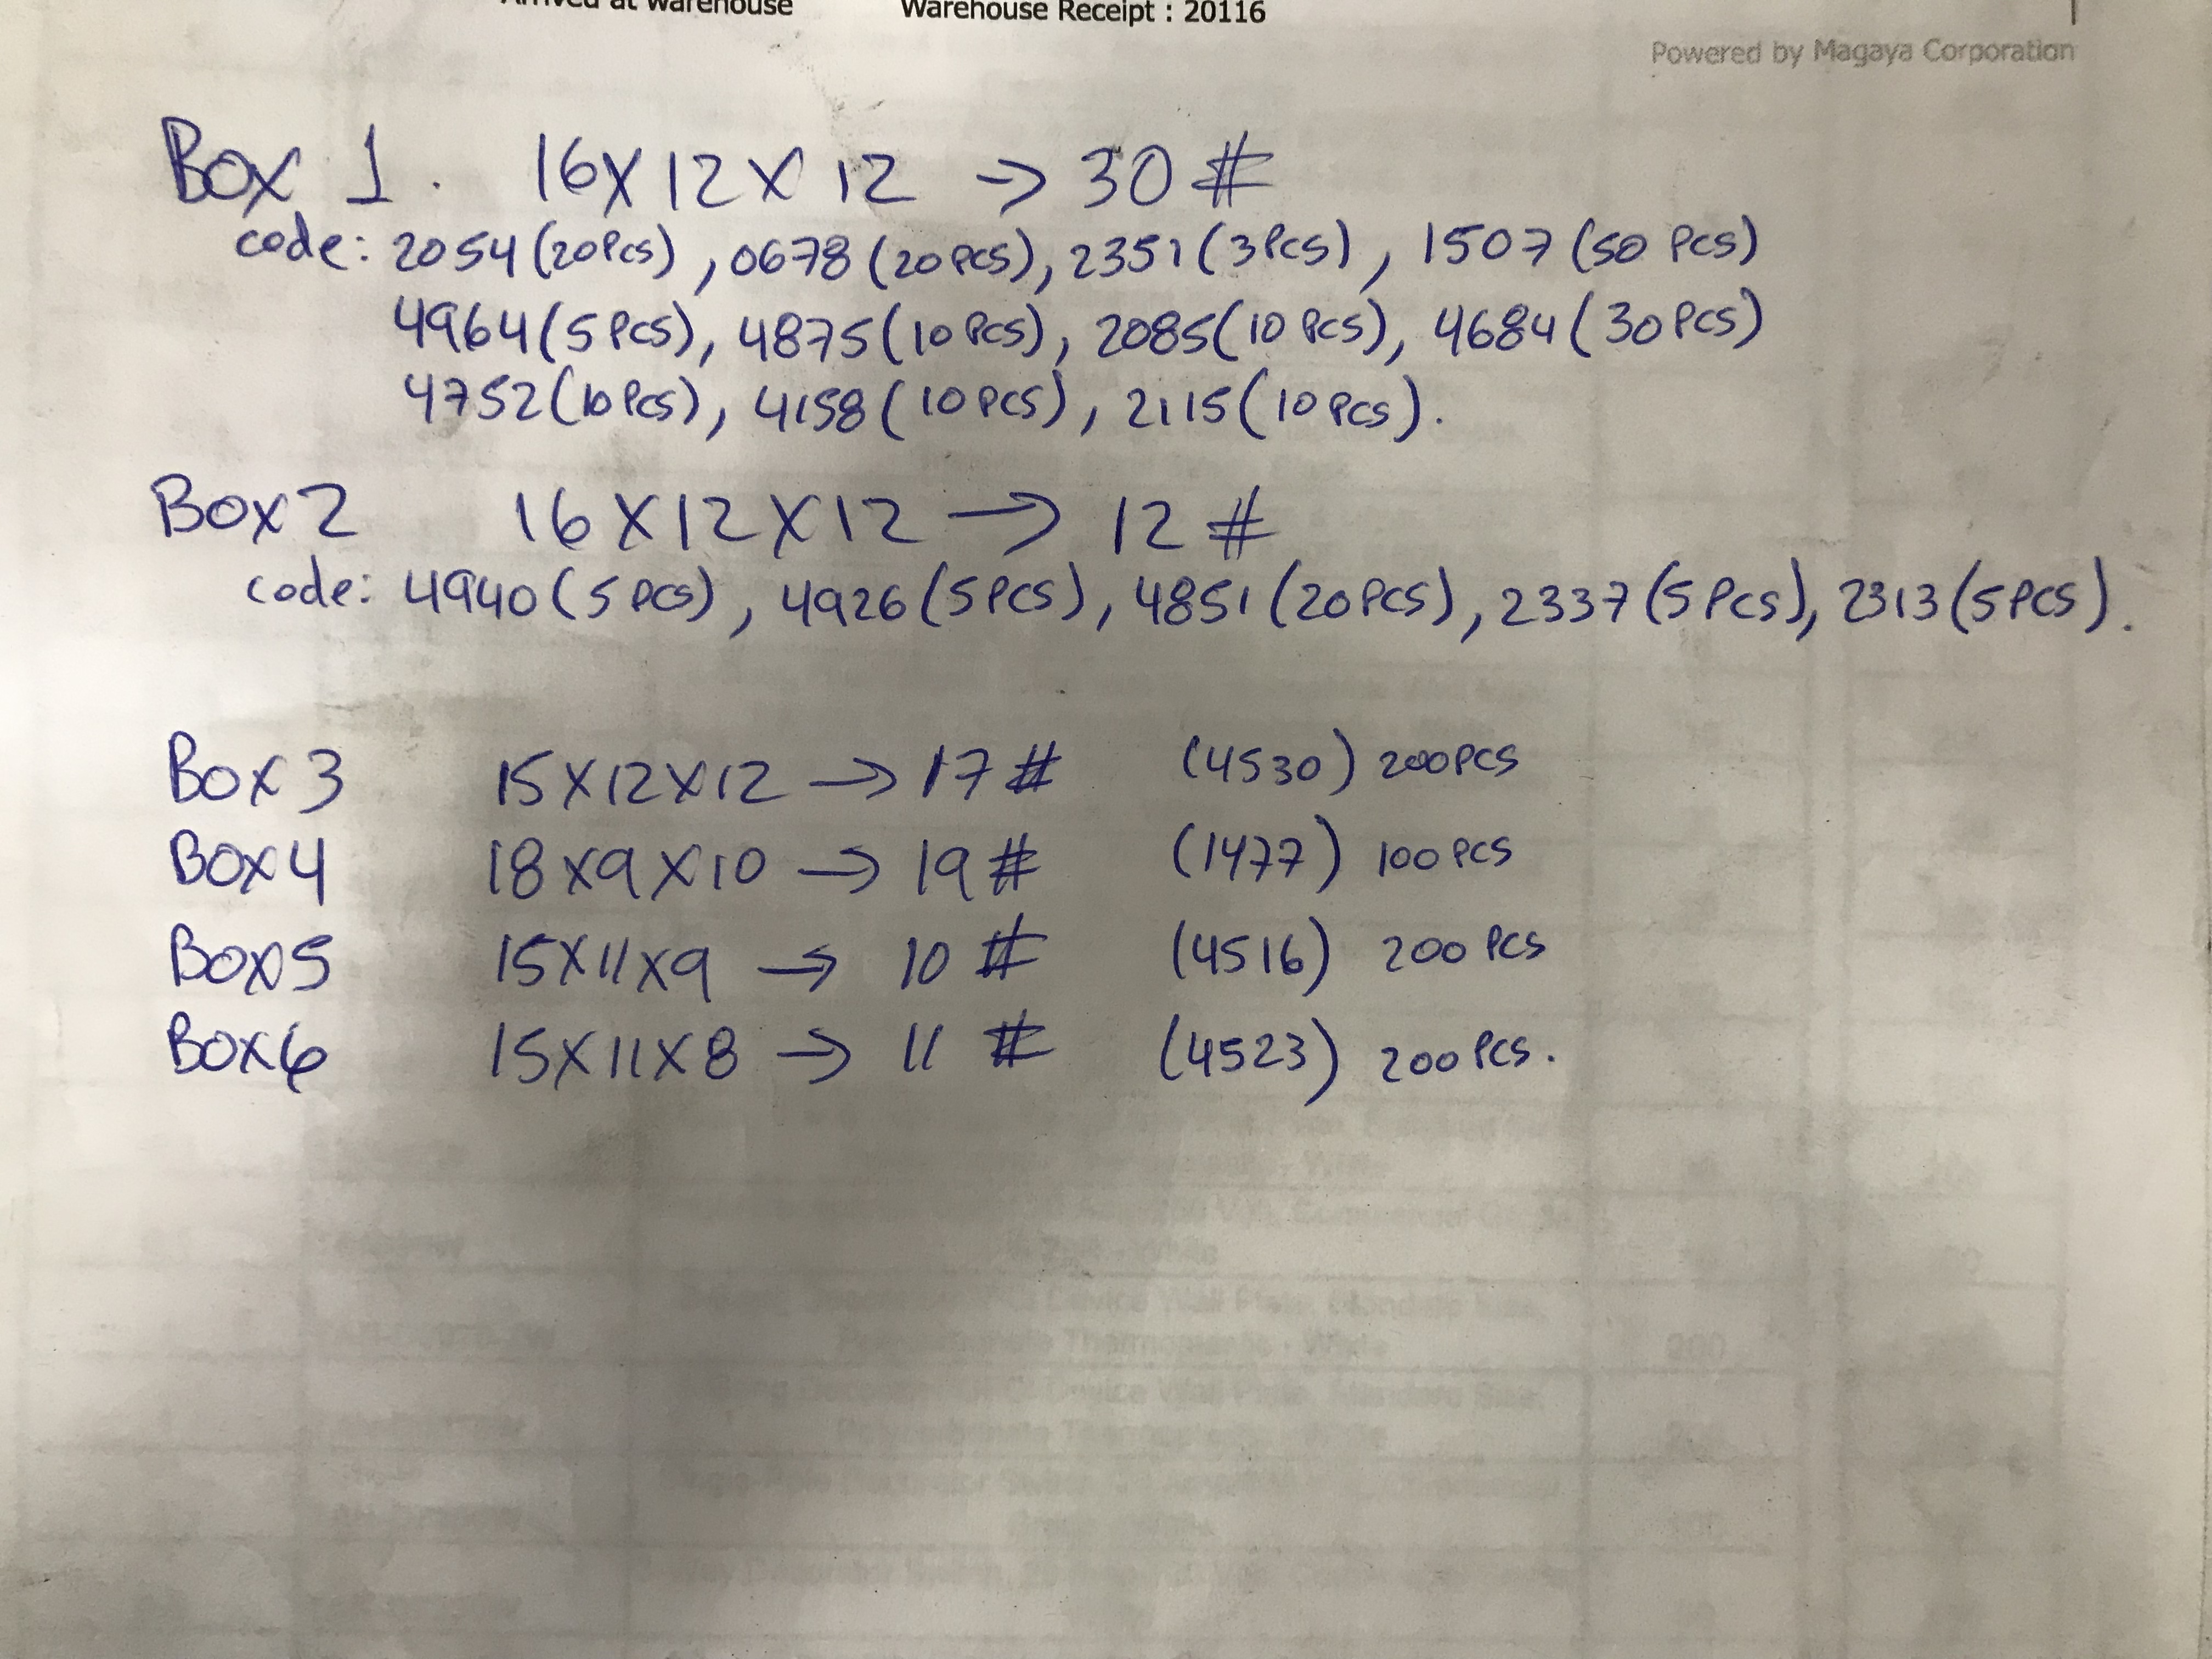 Arrived at Warehouse Warehouse Receipt : 20116
Powered by Magaya Corporation
Box 1. 16x12x12 → 30 #
code: 2054 (20Pcs), 0678 (20 pcs), 2351 (3Pcs), 1507 (50 Pcs)
4964 (5 Pcs), 4875 (10 Pcs), 2085 (10 Pcs), 4684 (30 Pcs)
4752 (10 Pcs), 4158 (10 Pcs), 2115 (10 Pcs).
Box 2 16x12x12 → 12 #
code: 4940 (5 pcs), 4926 (5 Pcs), 4851 (20 Pcs), 2337 (5 Pcs), 2313 (5 Pcs).
Box 3 15x12x12 → 17 # (4530) 200 Pcs
Box 4 18x9x10 → 19 # (1477) 100 Pcs
Box 5 15x11x9 → 10 # (4516) 200 Pcs
Box 6 15x11x8 → 11 # (4523) 200 Pcs.